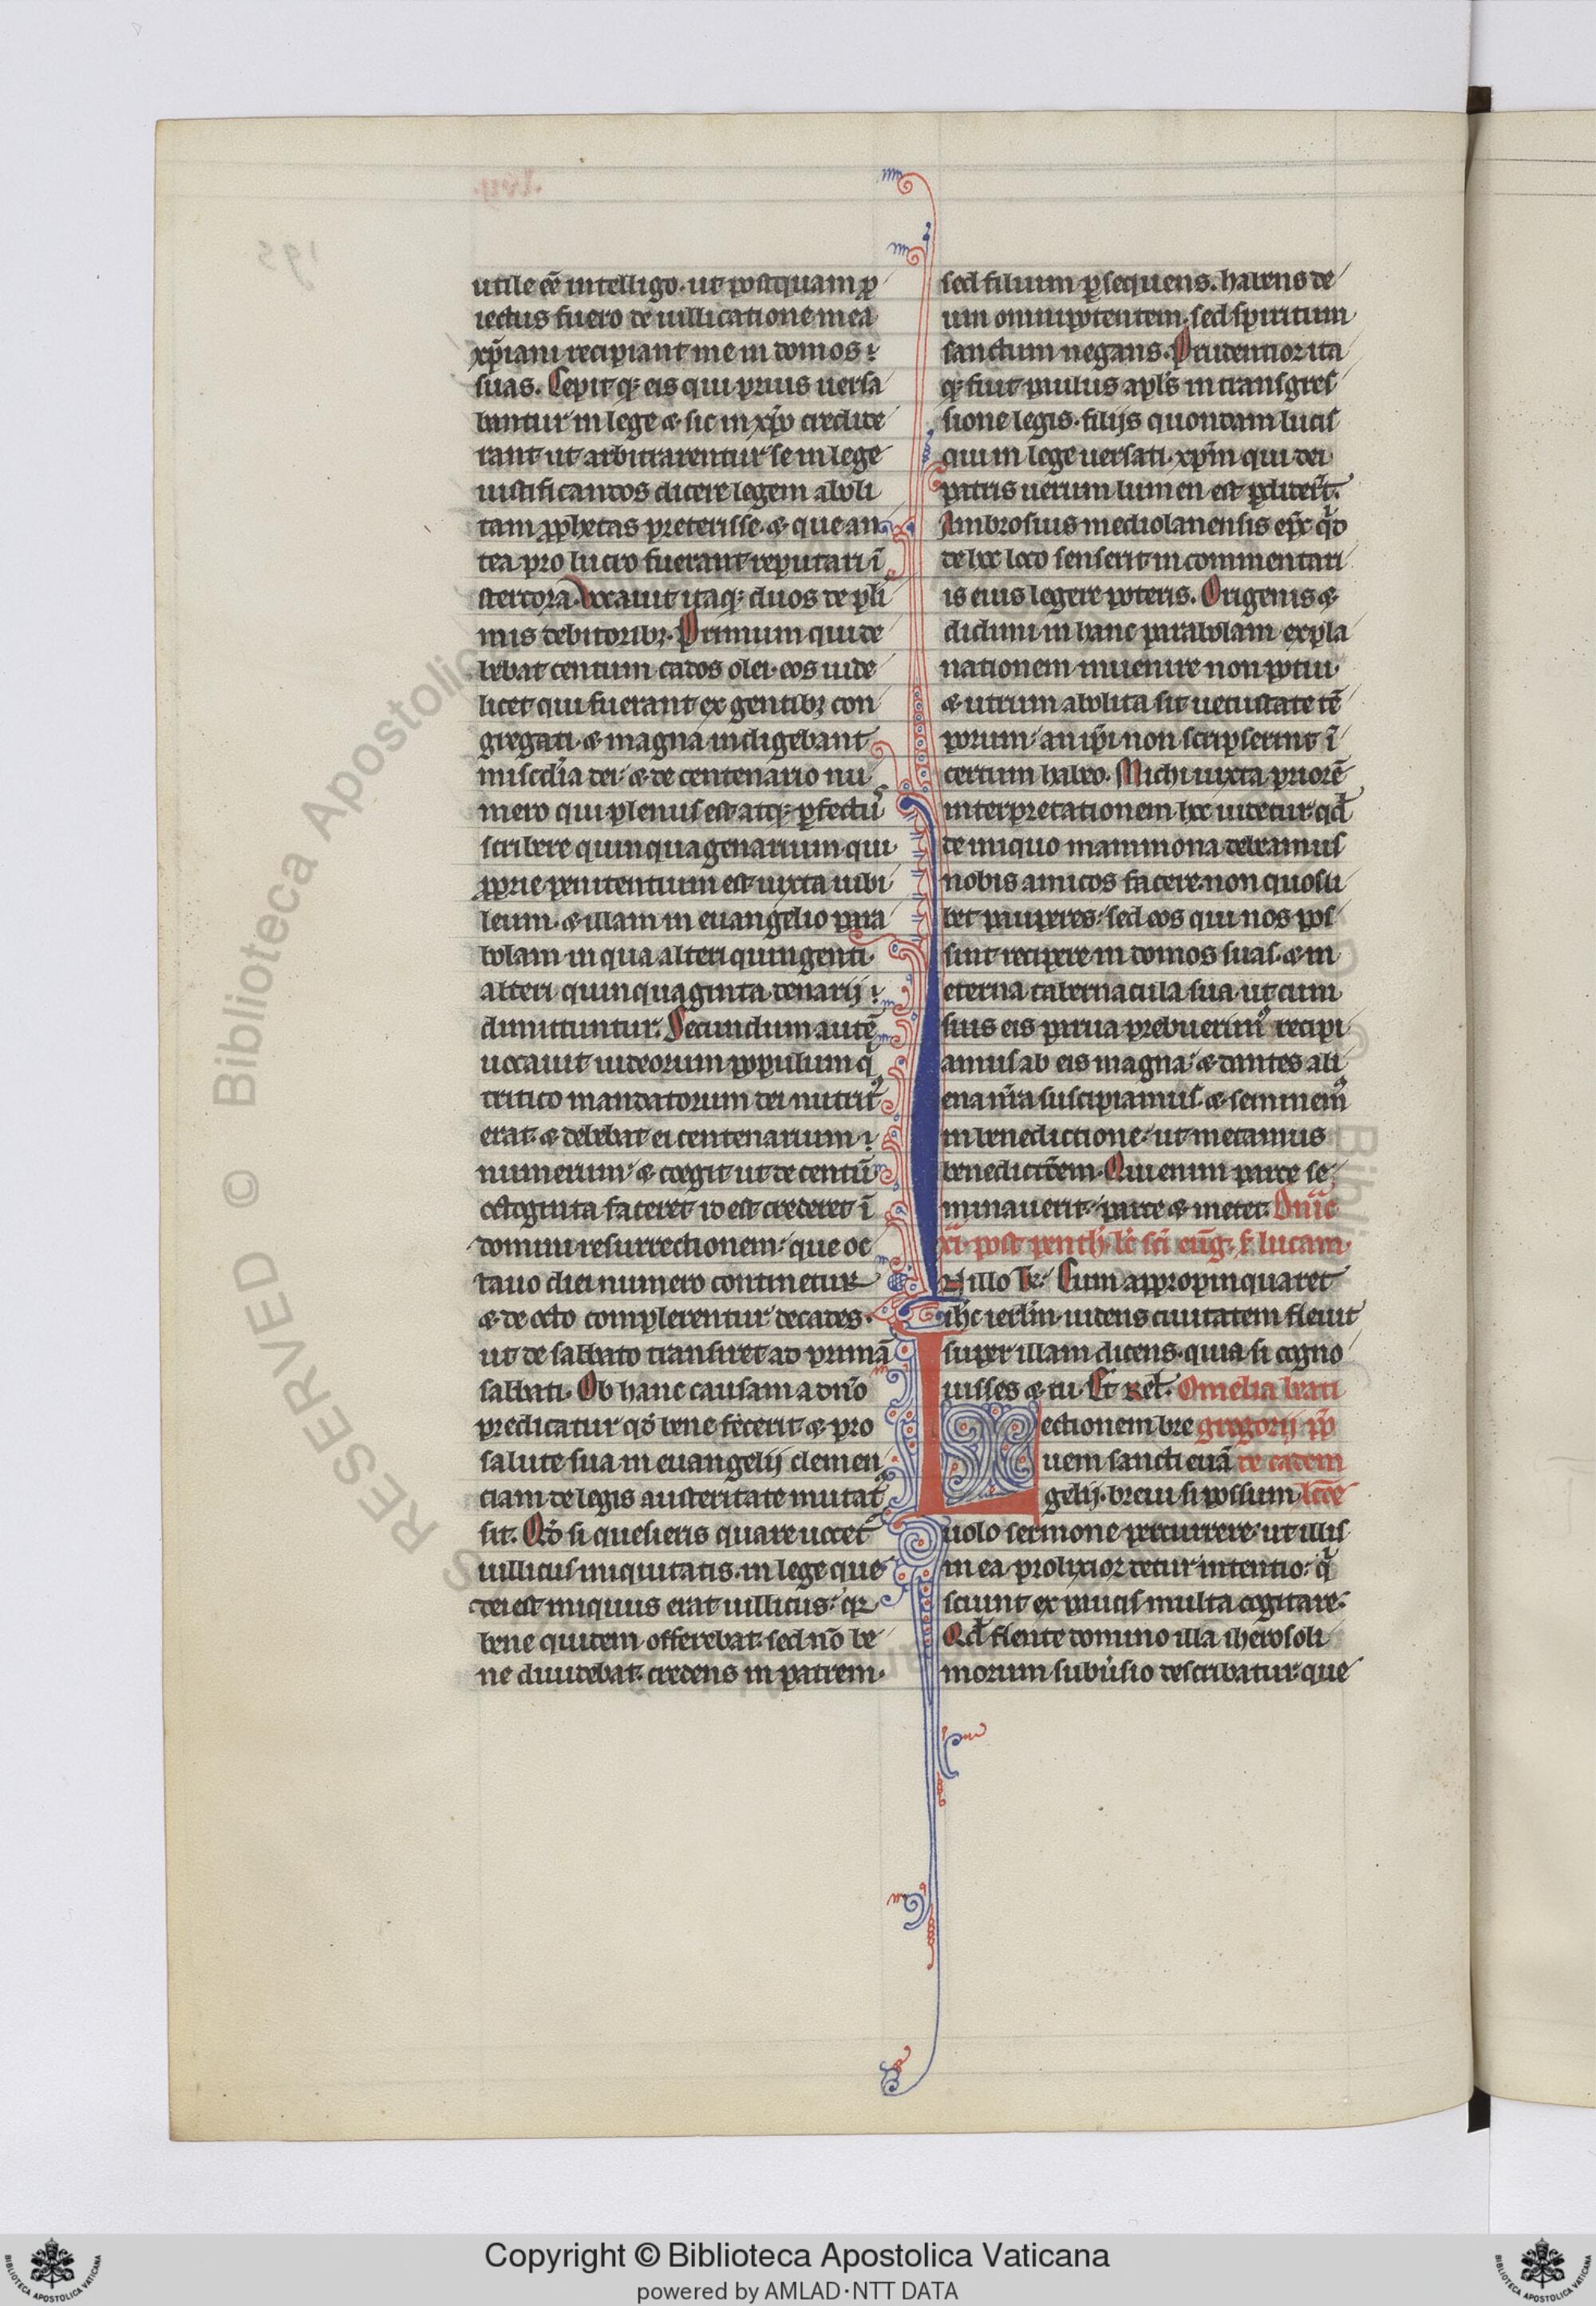 utile eē intelligo. ut postquam ꝓ
iectus fuero de uillicatione mea
xp̄iani recipiant me in domos
suas. Cepitq; eis qui prius uersa
bantur in lege & sic in xp̄o credide
rant ut arbitrarentur se in lege
iustificandos dicere legem aboli
tam ꝓphetas preterisse. & que an
tea pro lucro fuerant reputari ī
stercora. Vocauit itaq; duos de pl̓i
mis debitorib;. Primum qui de
bebat centum cados olei. eos uide
licet qui fuerant ex gentib; con
gregati. & magna indigebant
misc̄dia dei. & de centenario nu
mero qui plenus est atq; ꝑfectus
scribere quinquagenarium qui
ꝓprie penitentium est iuxta iubi
leum. & illam in euangelio para
bolam in qua alteri quingenti
alteri quinquaginta denarij
dimittuntur. Secundum autē
uocauit iudeorum populum q̄
tritico mandatorum dei nutrit᷒
erat. & debebat ei centenarium
numerum. & coegit ut de centū
octoginta faceret id est crederet ī
domini resurrectionem. que oc
tauo diei numero continetur
& de octo complerentur decades.
ut de sabbato transiret ad primā
sabbati. Ob hanc causam a dn̄o
predicatur qd̓ bene fecerit. & pro
salute sua in euangelij clemen
ciam de legis austeritate mutat᷒
sit. Qd̓ si quesieris quare uocet᷑
uillicus iniquitatis. in lege que
dei est iniquus erat uillicus. qr
bene quidem offerebat. sed nō be
ne diuidebat. credens in patrem.
sed filium ꝑsequens. habens de
um omnipotentem. sed spiritum
sanctum negans. Prudentior ita
q; fuit paulus apl̄s in transgres
sione legis. filijs quondam lucis
qui in lege uersati. xp̄m qui dei
patris uerum lumen est ꝑdider̄t.
Ambrosius mediolanensis ep̄c qd̓
de hoc loco senserit in commentari
is eius legere poteris. Origenis &
didimi in hanc parabolam expla
nationem inuenire non potui.
& utrum abolita sit uetustate tē
porum. an ip̄i non scripserint ī
certum habeo. Michi iuxta priorē
interpretationem hoc uidetur. qd̓
de iniquo mammona debeamus
nobis amicos facere. non quosli
bet pauperes. sed eos qui nos pos
sint recipere in domos suas. & in
eterna tabernacula sua. ut cum
suis eis parua prebuerim᷒ recipi
amus ab eis magna. & dantes ali
ena nr̄a suscipiamus. & seminem᷒
in benedictione. ut metamus
benedictōem. Qui enim parce se
minauerit. parce & metet. Dn̄ic
xi. post penth̄. lc̄ sc̄i eūg. s̄ lucam.
IN illo t̄e. Cum appropinquaret
ih̄c ierl̄m. uidens ciuitatem fleuit
super illam dicens. quia si cogno
uisses & tu. Et rel̄. Omelia beati
Lectionem bre gregorij pp̄
uem sancti euā de eadem
gelij. breui si possum lctōe
uolo sermone percurrere. ut illis
in ea prolixior detur intentio. q̄
sciunt ex paucis multa cogitare.
Qd̓ flente domino illa iherosoli
morum subuersio describatur. que
Copyright © Biblioteca Apostolica Vaticana
powered by AMLAD·NTT DATA